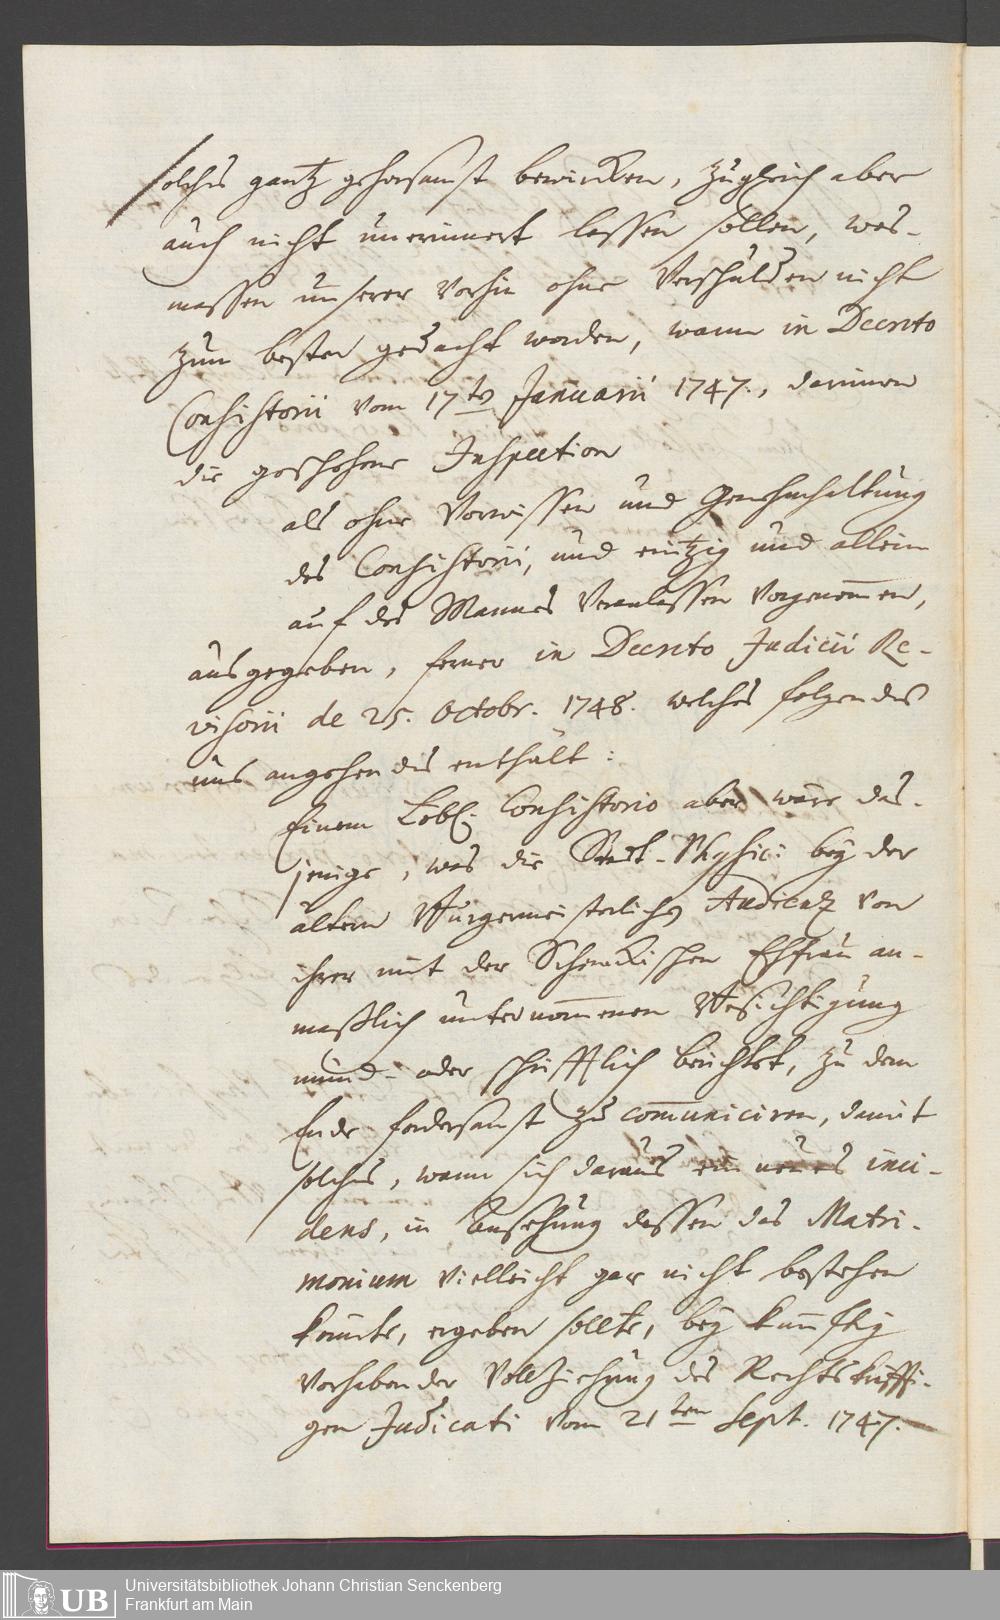 solches gantz gehorsamst bewircken, zugleich aber
auch nicht unerinnert lassen sollen, was-
massen unserer vorhin ohne Verschulden nicht
zum besten gedacht worden, wann in Decreto
Consistorii vom 17ten Januarii 1747., darinnen
die geschehene Inspection
als ohne Vorwissen und Genehmhaltung
des Consistorii, und eintzig und allein
auf des Mannes Veranlassen vorgenom̅en,
ausgegeben, ferner in Decreto Judicii Re-
visorii de 25. Octobr. 1748. welches folgendes
uns angehendes enthält:
Einem Löbl. Consistorio aber wäre das-
jenige, was die Stadt-Physici bey der
ältern Burgermeisterlichen Audientz von
ihrer mit der Schenckischen Ehfrau an-
maßlich unternom̅enen Besichtigung
mund- oder schrifftlich berichtet, zu dem
Ende fordersamst zu com̅uniciren, damit
solches, wann sich daraus ein neues inci-
dens, in Ansehung dessen das Matri-
monium vielleicht gar nicht bestehen
könnte, ergeben sollte, bey künfftig
vorhabender Vollziehung des Rechtskräffti-
gen Judicati vom 21ten Sept. 1747.
UB
Universitätsbibliothek Johann Christian Senckenberg
Frankfurt am Main